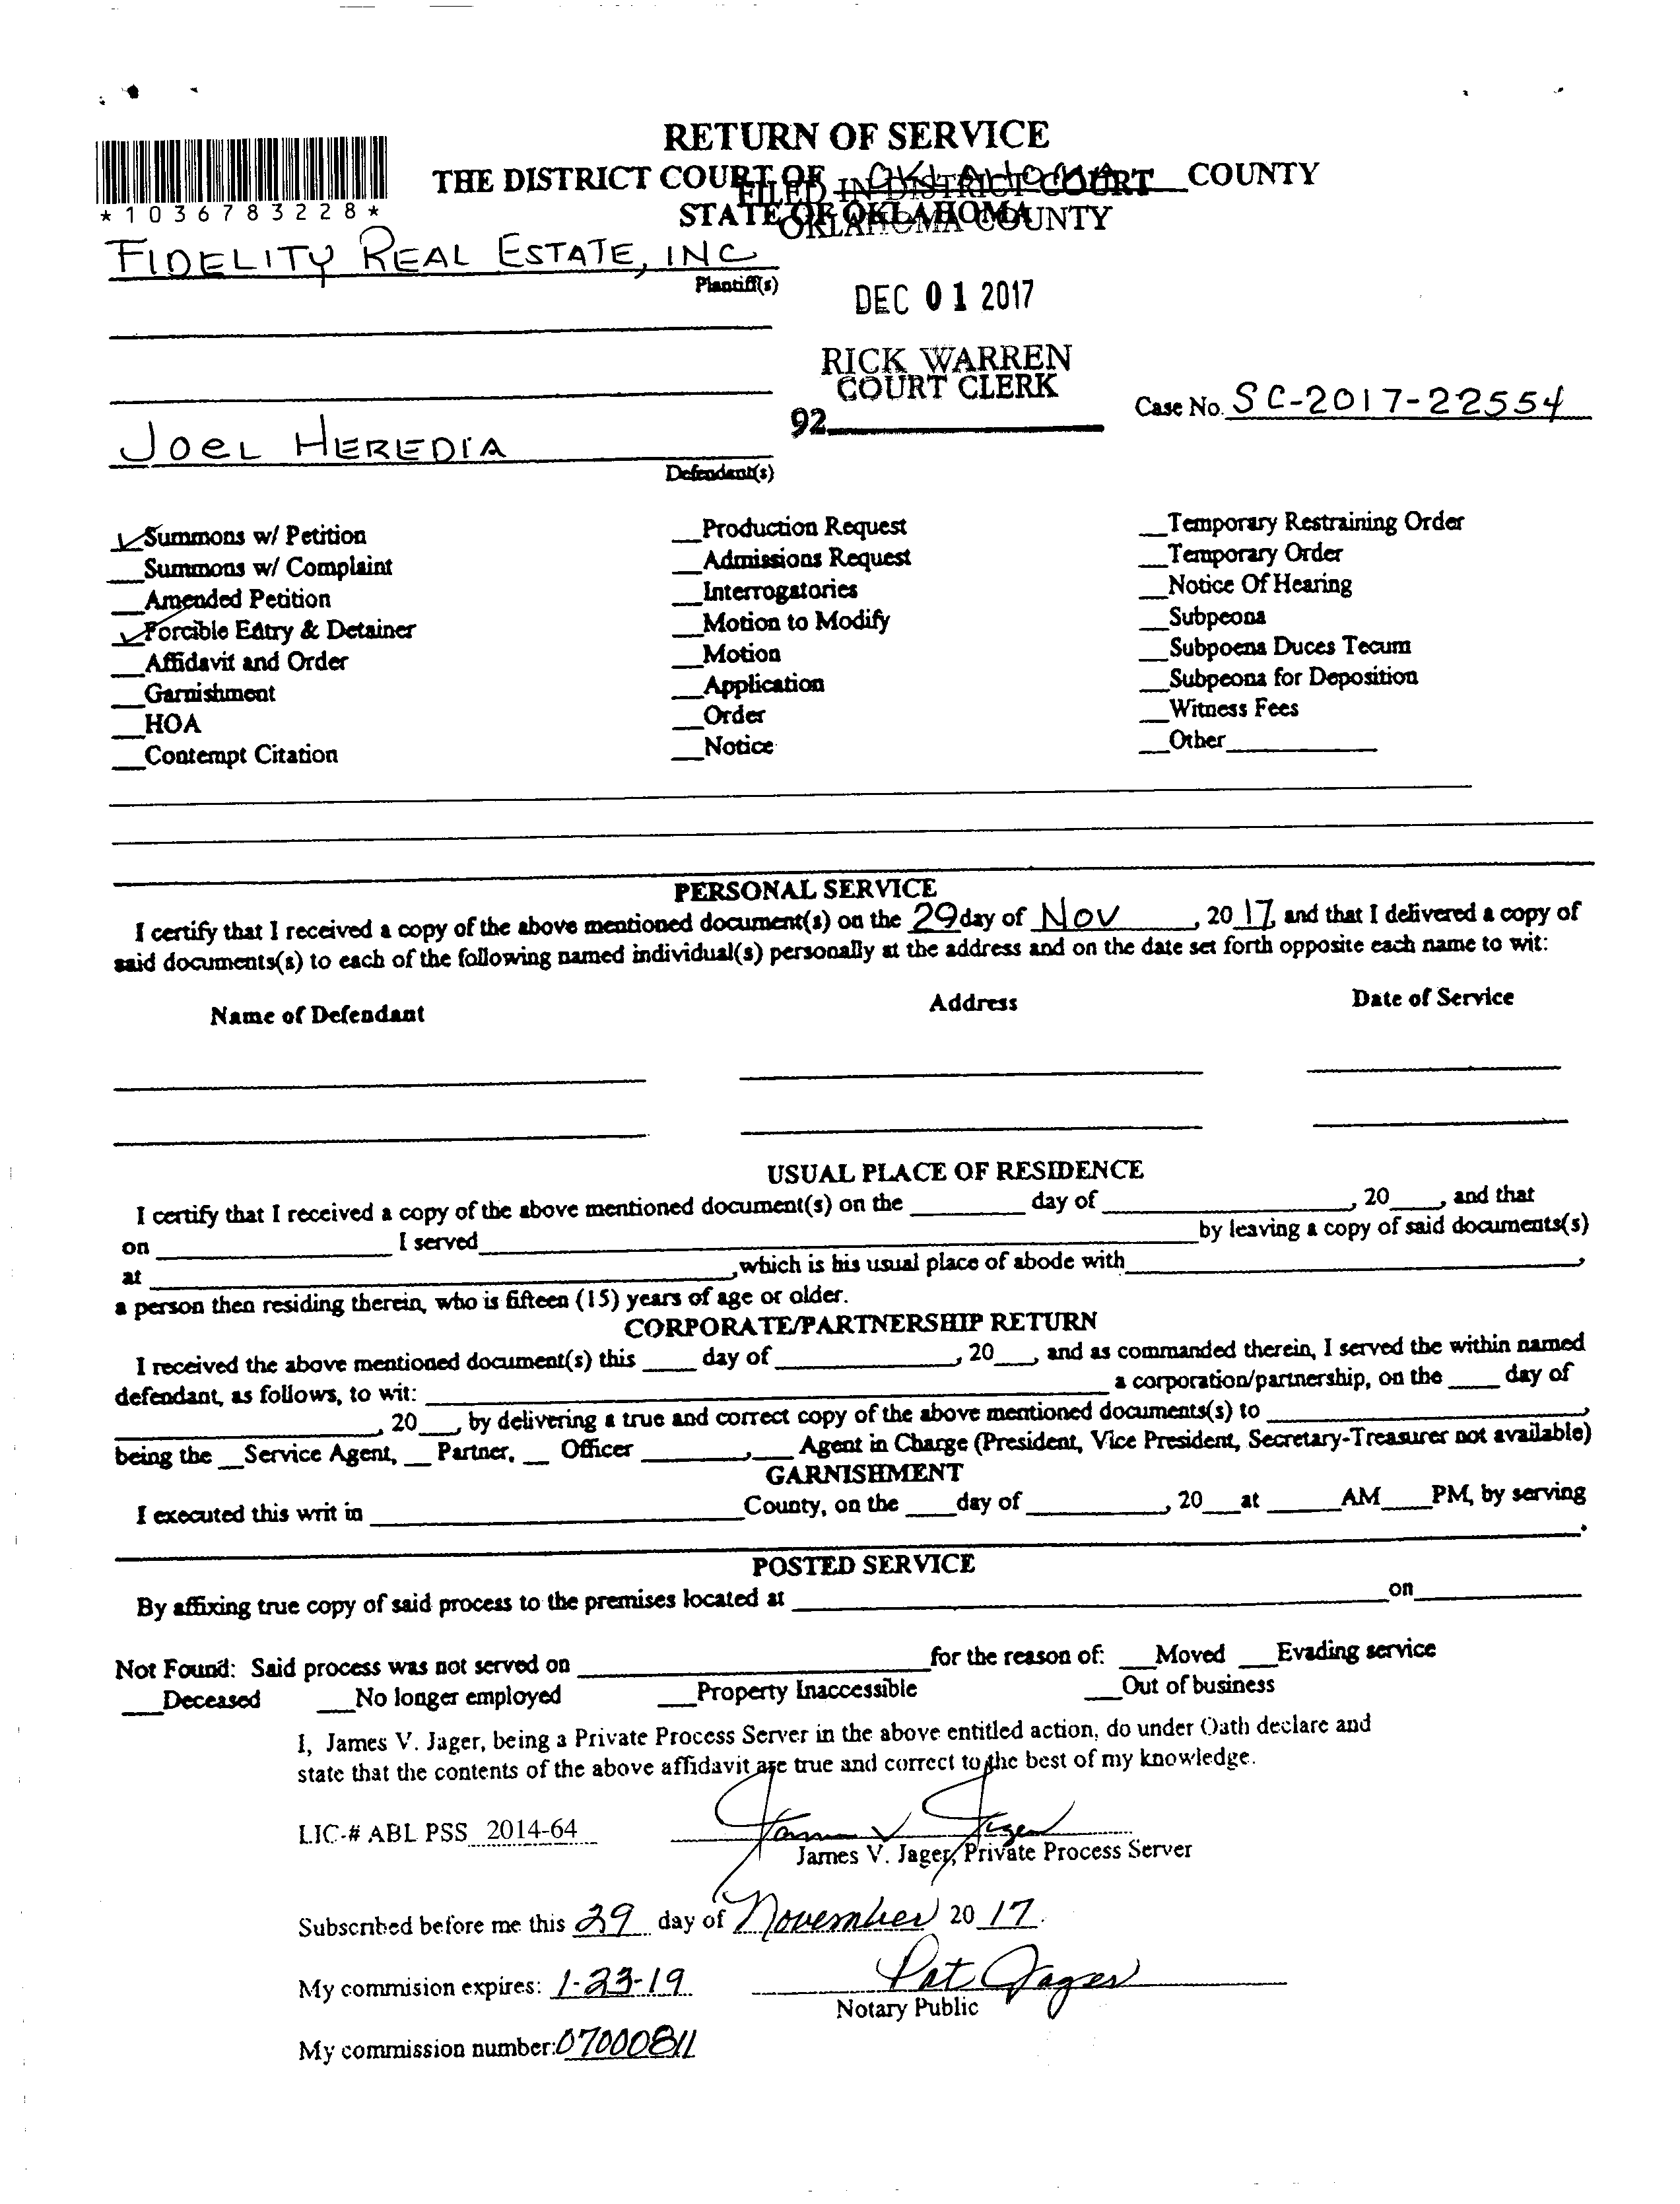 RETURN OF SERVICE
THE DISTRICT COURT OF OKLAHOMA COUNTY
STATE OF OKLAHOMA
FILED IN DISTRICT COURT
OKLAHOMA COUNTY
*1036783228*
FIDELITY REAL ESTATE, INC
Plantiff(s)
DEC 01 2017
RICK WARREN
COURT CLERK
92
Case No. SC-2017-22554
JOEL HEREDIA
Defendant(s)
✓ Summons w/ Petition __Production Request __Temporary Restraining Order
__Summons w/ Complaint __Admissions Request __Temporary Order
__Amended Petition __Interrogatories __Notice Of Hearing
✓ Forcible Entry & Detainer __Motion to Modify __Subpeona
__Affidavit and Order __Motion __Subpoena Duces Tecum
__Garnishment __Application __Subpeona for Deposition
__HOA __Order __Witness Fees
__Contempt Citation __Notice __Other________
PERSONAL SERVICE
I certify that I received a copy of the above mentioned document(s) on the 29 day of Nov, 20 17, and that I delivered a copy of
said documents(s) to each of the following named individual(s) personally at the address and on the date set forth opposite each name to wit:
Name of Defendant Address Date of Service
USUAL PLACE OF RESIDENCE
I certify that I received a copy of the above mentioned document(s) on the ______ day of ____________, 20___, and that
on ____________ I served____________ by leaving a copy of said documents(s)
at ____________,which is his usual place of abode with____________,
a person then residing therein, who is fifteen (15) years of age or older.
CORPORATE/PARTNERSHIP RETURN
I received the above mentioned document(s) this ____ day of ____________, 20___, and as commanded therein, I served the within named
defendant, as follows, to wit: ____________ a corporation/partnership, on the ____ day of
____________, 20___, by delivering a true and correct copy of the above mentioned documents(s) to ____________,
being the __Service Agent, __ Partner, __ Officer ________,___ Agent in Charge (President, Vice President, Secretary-Treasurer not available)
GARNISHMENT
I executed this writ in ____________County, on the ____day of ________, 20___at _____AM____PM, by serving
____________.
POSTED SERVICE
By affixing true copy of said process to the premises located at ____________on________
Not Found: Said process was not served on ____________for the reason of: ___Moved ___Evading service
___Deceased ___No longer employed ___Property Inaccessible ___Out of business
I, James V. Jager, being a Private Process Server in the above entitled action, do under Oath declare and
state that the contents of the above affidavit are true and correct to the best of my knowledge.
LIC-# ABL PSS 2014-64 James V Jager
James V. Jager, Private Process Server
Subscribed before me this 29 day of November 20 17.
My commision expires: 1-23-19 Pat Jager
Notary Public
My commission number: 07000811